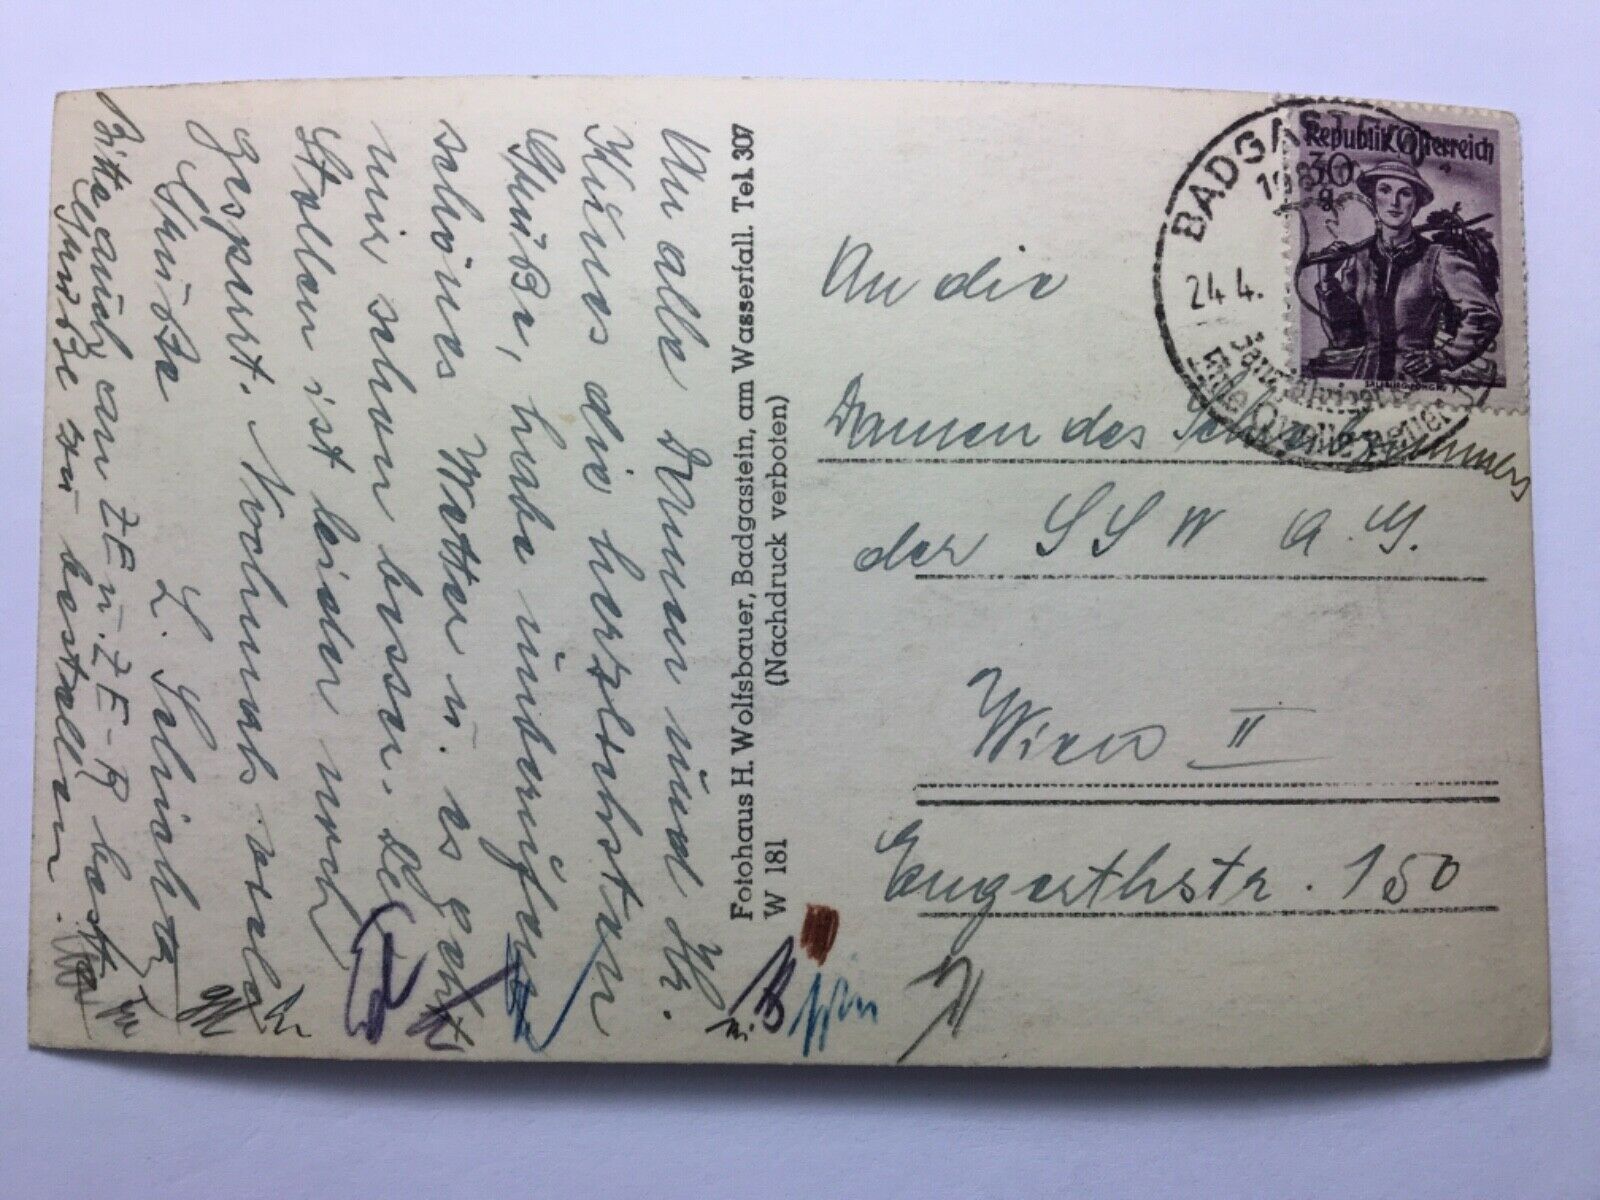 An alle Damen und Hr.
Küns die herzlichsten
Grüße, habe
schönes Wetter u. es geht
mir schon besser. Der
Stollen ist leider noch
gesperrt. Nochmals viele
Grüße
L.
Bitte auch an ZE u. ZE-B beste
Grüße zu bestellen.
Fotohaus H. Wolfsbauer, Badgastein, am Wasserfall. Tel. 307
W 181 (Nachdruck verboten)
BADGASTEIN
24.4.
Republik Österreich
30 g
An die
Damen des Schreibzimmers
der SSW A.G.
Wien II
Engerthstr. 150